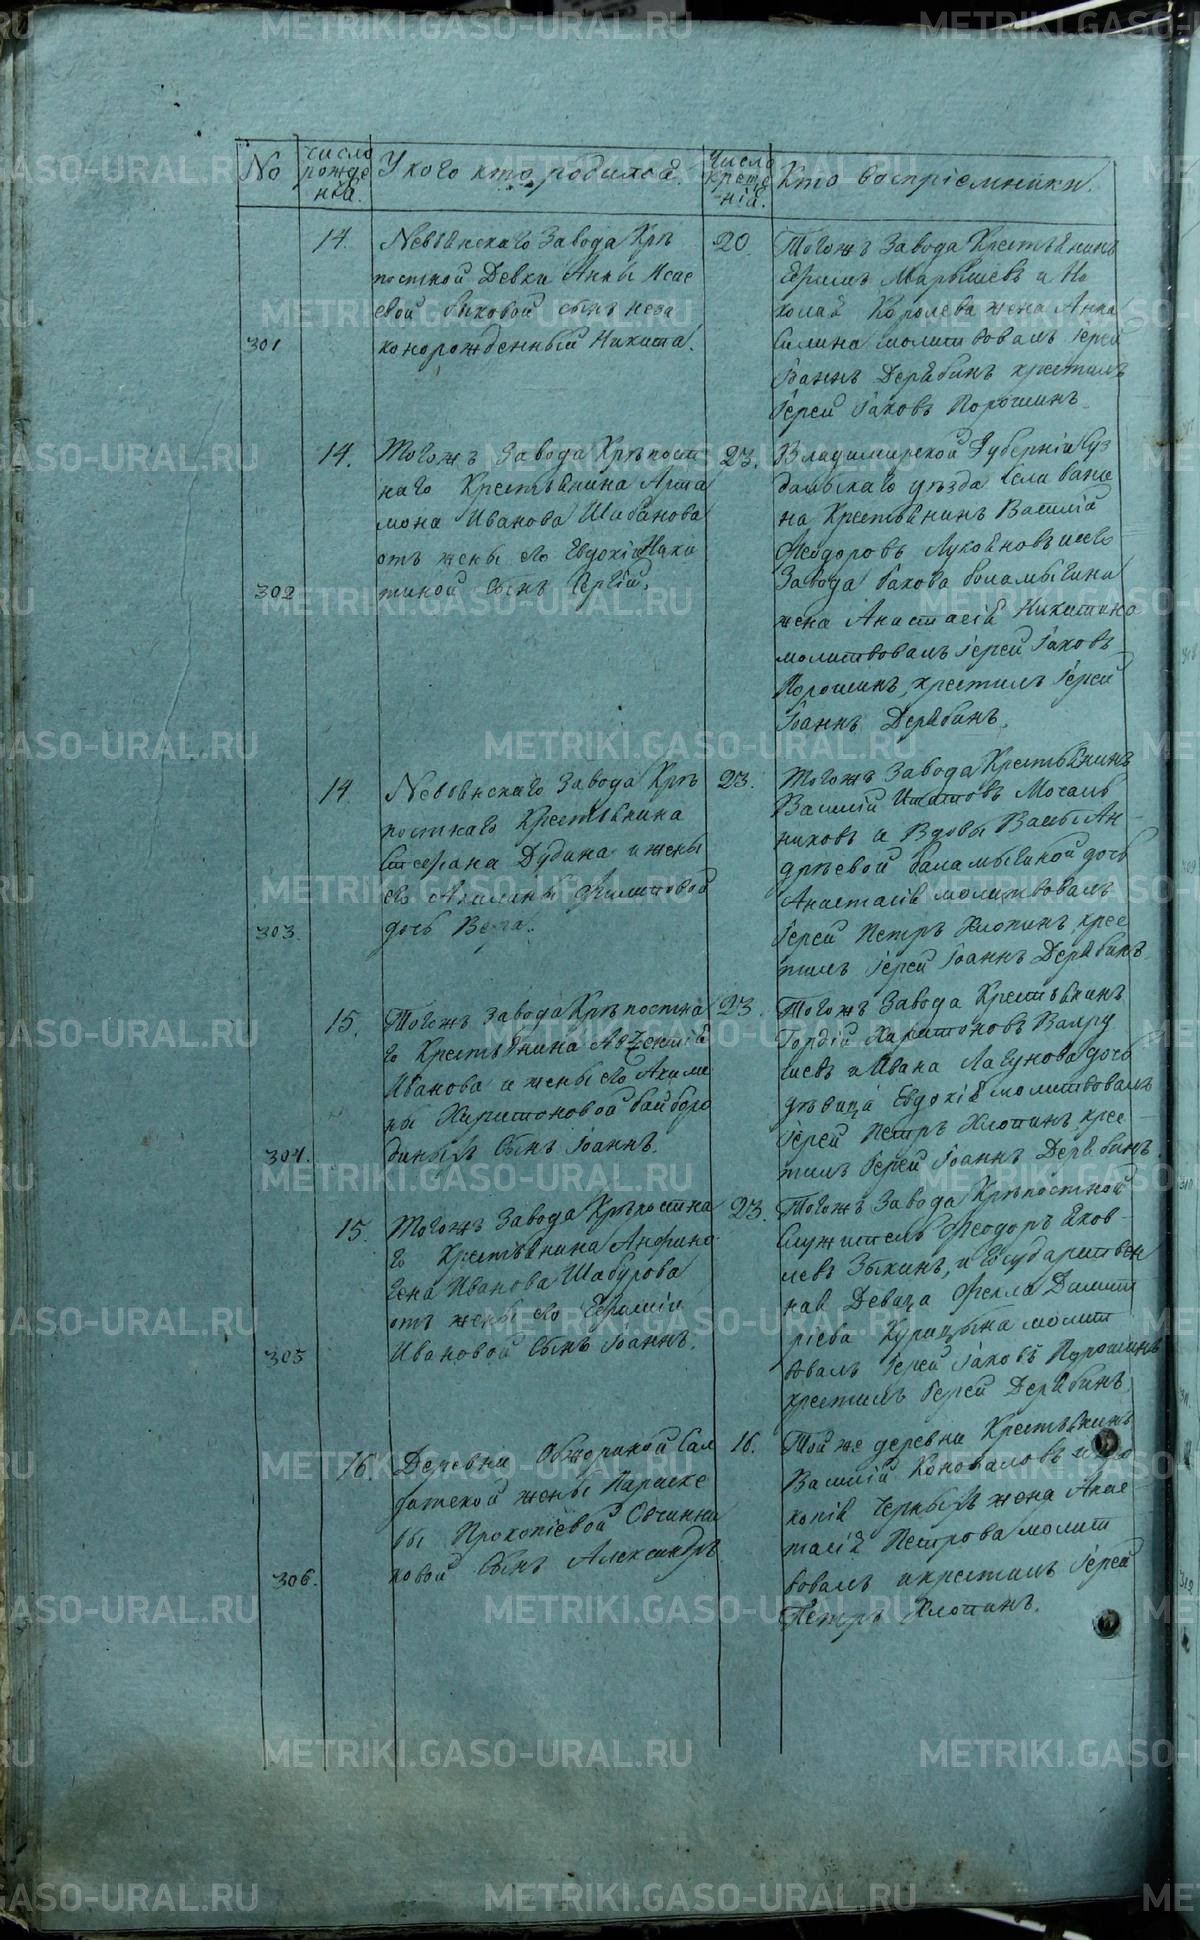 No
число рожде нія.
У кого кто родился.
число креще ній.
Кто воспріемники.
301
14.
Невьянскаго Завода Крѣ
постной Девки Анны Исае
вой Быковой сынъ неза
конорожденный Никита.
20
Тогожъ Завода Крестьянинъ
Ефимъ Марышевъ и Ни
колая Королева жена Анна
молитвовалъ Іерей
Іоаннъ Дерябинъ крестилъ
Іерей Іаковъ Порошинъ.
302
14.
Тогожъ Завода Крѣпост
наго Крестьянина Арта
мона Иванова Шабанова
отъ жены его Евдокіи Ники
тиной Сынъ Сергій.
23.
Владимирской Губерніи Суз
дальскаго уѣзда Села
на Крестьянинъ Василій
Феодоровъ
Завода Іакова Баламыгина
жена Анастасія Никитина
молитвовалъ Іерей Іаковъ
Порошинъ, крестилъ Іерей
Іоаннъ Дерябинъ.
303.
14
Невьянскаго Завода Крѣ
постнаго Крестьянина
Стефана Дудина и жены
его Акилины Филиповой
дочь Вера.
23.
Тогожъ Завода Крестьянинъ
Василій Ипатовъ Мочаль
никовъ и Вдовы Вассы Ан-
дрѣевой Баламыгиной дочь
Анастасія молитвовалъ
Іерей Петръ Хлопинъ, крес
тилъ Іерей Іоаннъ Дерябинъ.
304.
15.
Тогожъ Завода Крѣпостна
го Крестьянина Авксентія
Иванова и жены его Акили
ны Харитоновой Байборо
диныхъ Сынъ Іоаннъ.
23.
Тогожъ Завода Крестьянинъ
Гордій Харитоновъ Вахру
шевъ и Ивана Лагунова дочь
дѣвица Евдокія молитвовалъ
Іерей Петръ Хлопинъ, крес-
тилъ Іерей Іоаннъ Дерябинъ.
305
15.
Тогожъ Завода Крѣпостна
го Крестьянина Анфино
гена Иванова Шабурова
отъ жены его
Ивановой Сынъ Іоаннъ.
23.
Тогожъ Завода Крѣпостной
Служитель Феодоръ Яков-
левъ Зыкинъ, и Государствен
ная Девица Фекла Димит
ріева Курицына молит
вовалъ Іерей Іаковъ Порошинъ
крестилъ Іерей Дерябинъ.
306.
16
Деревни Обжориной Сол
датской жены Параске
вы Прокопіевой Овчинни
ковой Сынъ Александръ.
16.
Той же деревни Крестьянинъ
Василій Коноваловъ и Про
копія Черныхъ жена Анас-
тасія Петрова молит
вовалъ и крестилъ Іерей
Петръ Хлопинъ.
METRIKI.GASO-URAL.RU